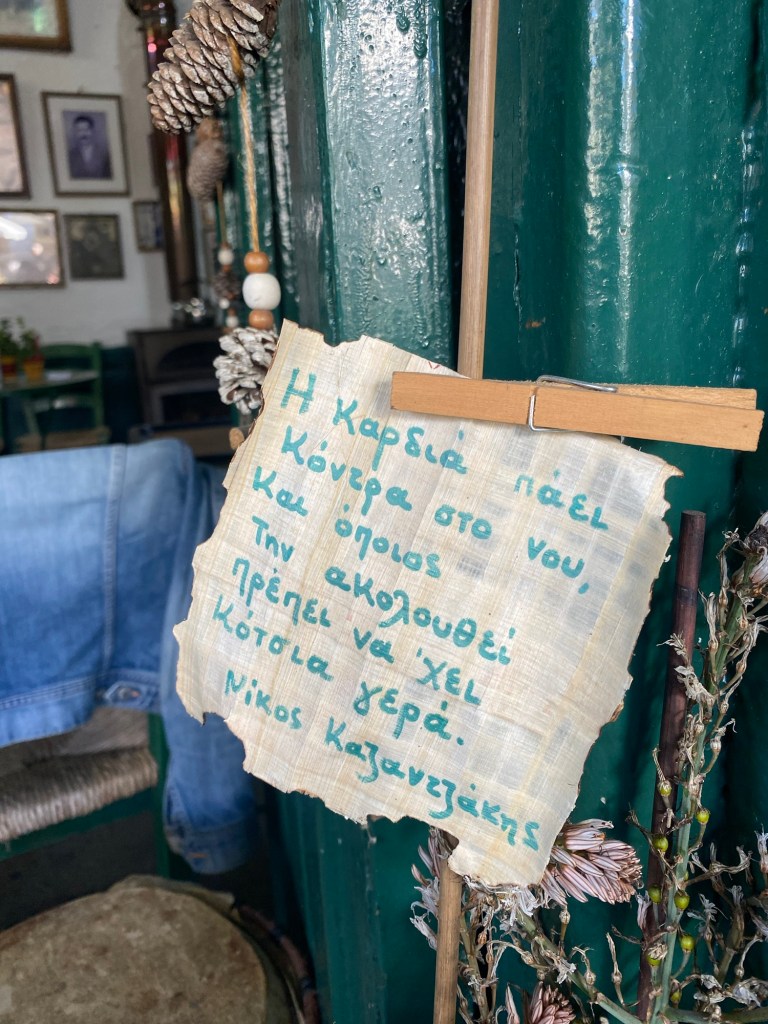 Η Καρδιά πάει
Κόντρα στο νου,
Και όποιος
Την ακολουθεί
πρέπει να 'χει
Κότσια γερά.
Νίκος Καζαντζάκης